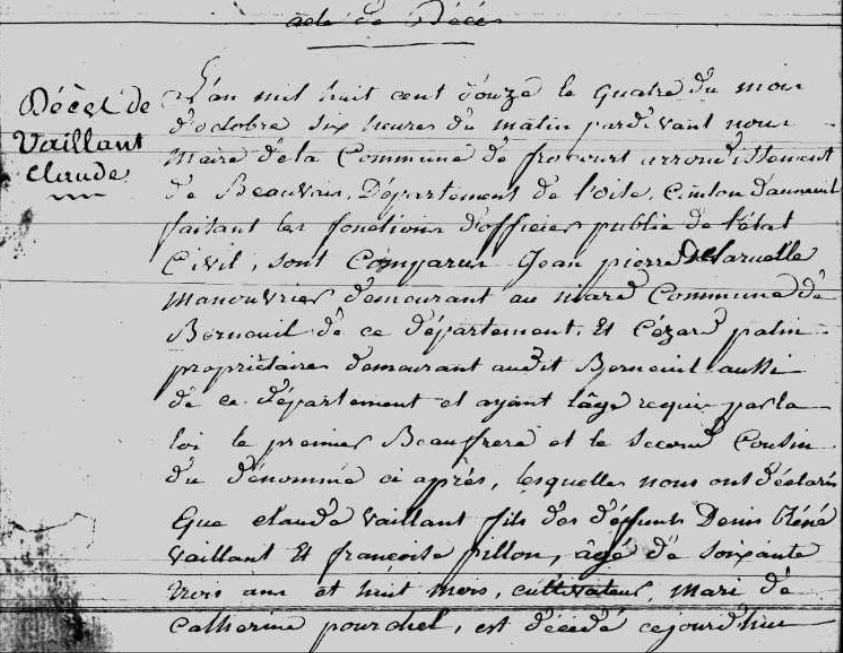 acte de Décès
Décès de
Vaillant
claude
L'an mil huit cent douze le quatre du mois
d'octobre six heures du matin pardevant nous
maire de la Commune de frocourt arrondissement
de Beauvais, Département de l'oise, Canton d'auneuil
faisant les fonctions d'officier public de l'état
Civil, sont Comparus Jean pierre Delaruelle
manouvrier demeurant au mare Commune de
Berneuil de ce département, Et Cézard patin
propriétaire demeurant audit Berneuil aussi
de ce département et ayant l'âge requis par la
loi le premier Beaufrere et le second Cousin
du dénommé ci après, lesquelles nous ont déclarés
Que claude Vaillant fils des défunts Denis Réné
Vaillant Et françoise pillon, âgé de soixante
trois ans et huit mois, cultivateur, mari de
Catherine pourchel, est décédé cejourd'hui